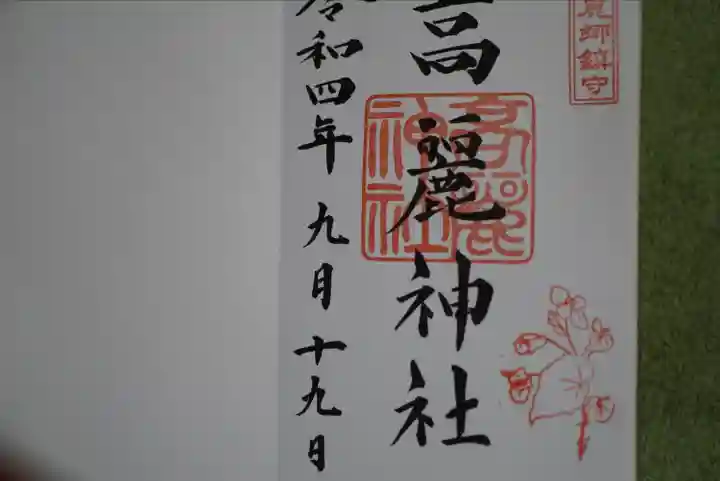 荒師鎮守
高麗神社
高麗神社
令和四年 九月十九日